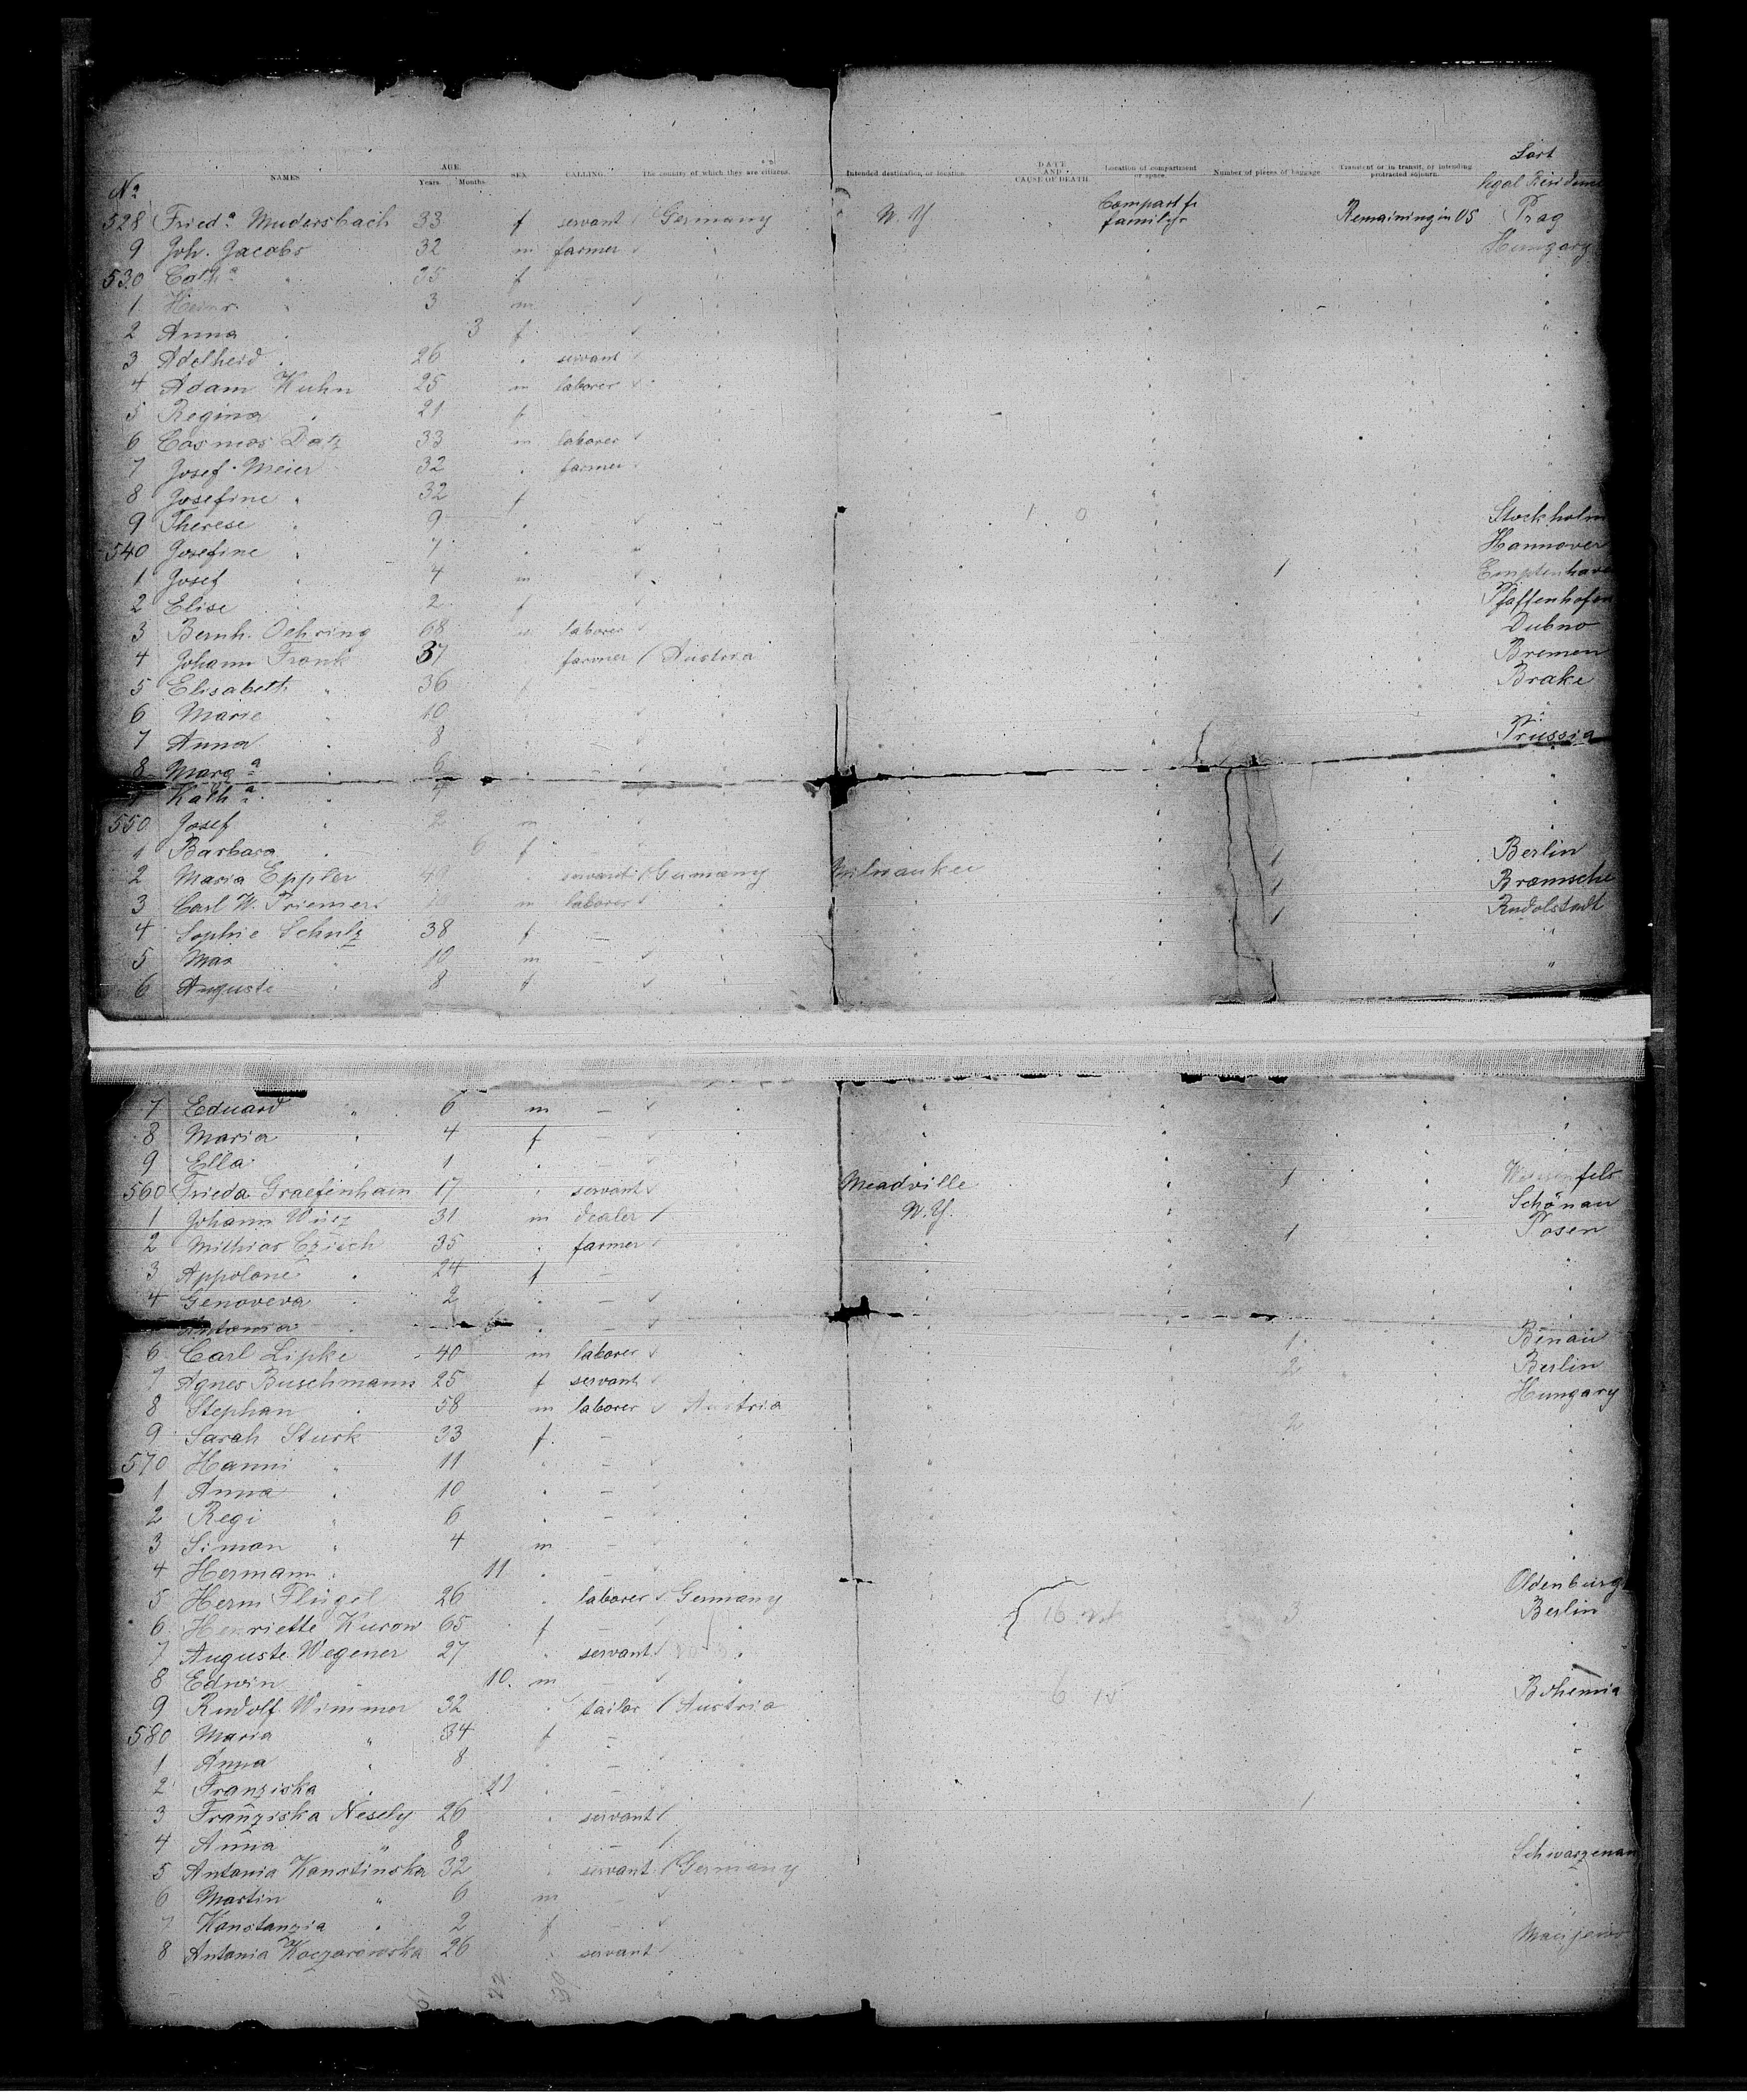 Last
NAMES. AGE. Years. Months. SEX. CALLING. The country of which they are citizens. Intended destination, or location. DATE AND CAUSE OF DEATH. Location of compartment or space. Number of pieces of baggage. Transient or in transit, or intending protracted sojourn. legal Residence
No
528 Fried.a Mudersbach 33 f servant Germany N.Y Compart fr familys Remaining in US Prag
9 Joh. Jacobs 32 m farmer Hungary
530 Cath.a " 35 f
1 Heinr. " 3 m
2 Anna " 3 f
3 Adelheid " 26 " servant
4 Adam Kuhn 25 m laborer
5 Regina " 21 f
6 Cosmos Datz 33 m laborer
7 Josef Meier 32 " farmer
8 Josefine " 32 f
9 Therese " 9 " Stockholm
540 Josefine " 7 " Hannover
1 Josef " 4 m 1
2 Elise " 2 f Pfaffenhofen
3 Bernh. Oehring 68 m laborer Dubno
4 Johann Frank 37 farmer Austria Bremen
5 Elisabeth " 36 f – Brake
6 Marie " 10 "
7 Anna " 8 " Prussia
8 Marg.a " 6 –
9 Kath.a " 4
550 Josef " 2 m
1 Barbara " 6 f – 1 Berlin
2 Maria Eppler servant Germany Milwaukee 1 Bramsche
3 Carl W. Priemer m laborer 1 Rudolstadt
4 Sophie Schulz 38 f – "
5 Max " 10 m – "
6 Auguste " 8 f
7 Eduard " 6 m –
8 Maria " 4 f –
9 Ella " 1 " –
560 Frieda Graefenhain 17 " servant Meadville 1 Weissenfels
1 Johann 31 m dealer N.Y. Schönau
2 Mithias Czisch 35 " farmer 1 Posen
3 Appolone " 24 f –
4 Genoveva " 2 " –
Antonia " 6 " –
6 Carl Lipke 40 m laborer 1 Benau
7 Agnes Buschmann 25 f servant 2 Berlin
8 Stephan " 58 m laborer Austria Hungary
9 Sarah Sturk 33 f – 2
570 Hanni " 11 " –
1 Anna " 10 " –
2 Regi " 6 " –
3 Simon " 4 m –
4 Hermann " 11 " –
5 Herm Flügel 26 " laborer Germany Oldenburg
6 Henriette Kurow 65 f – 3 Berlin
7 Auguste Wegener 27 " servant
8 Edwin " 10 m –
9 Rudolf Wimmer 32 " tailor Austria Bohemia
580 Maria " 34 f –
1 Anna " 8 " –
2 Franziska " 11 " –
3 Franziska Nesely 26 " servant 1
4 Anna " 8 " –
5 Antonia Konstinska 32 " servant Germany Schwarzenau
6 Martin " 6 m –
7 Konstanzia " 2 f –
8 Antonia Kaczarowska 26 " servant